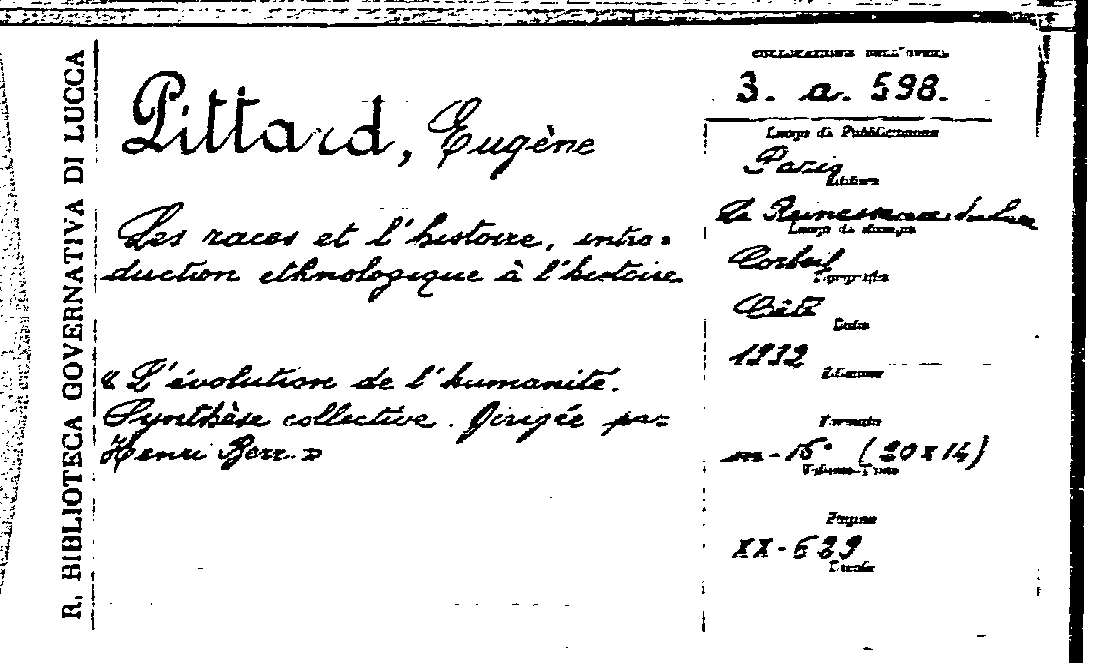 R. BIBLIOTECA GOVERNATIVA DI LUCCA
Pittard, Eugène
Les races et l'histoire, intro=
duction ethnologique à l'histoire.
« L'évolution de l'humanité.
Synthèse collective. Dirigée par
Henri Berr. »
COLLOCAZIONE DELL'OPERA
3. a. 598.
Luogo di Pubblicazione
Paris
Editore
La Renaissance du livre
Luogo di stampa
Corbeil
Tipografia
Crété
Data
1932
Edizione
Formato
in-16° (20x14)
Pagine
XX-629